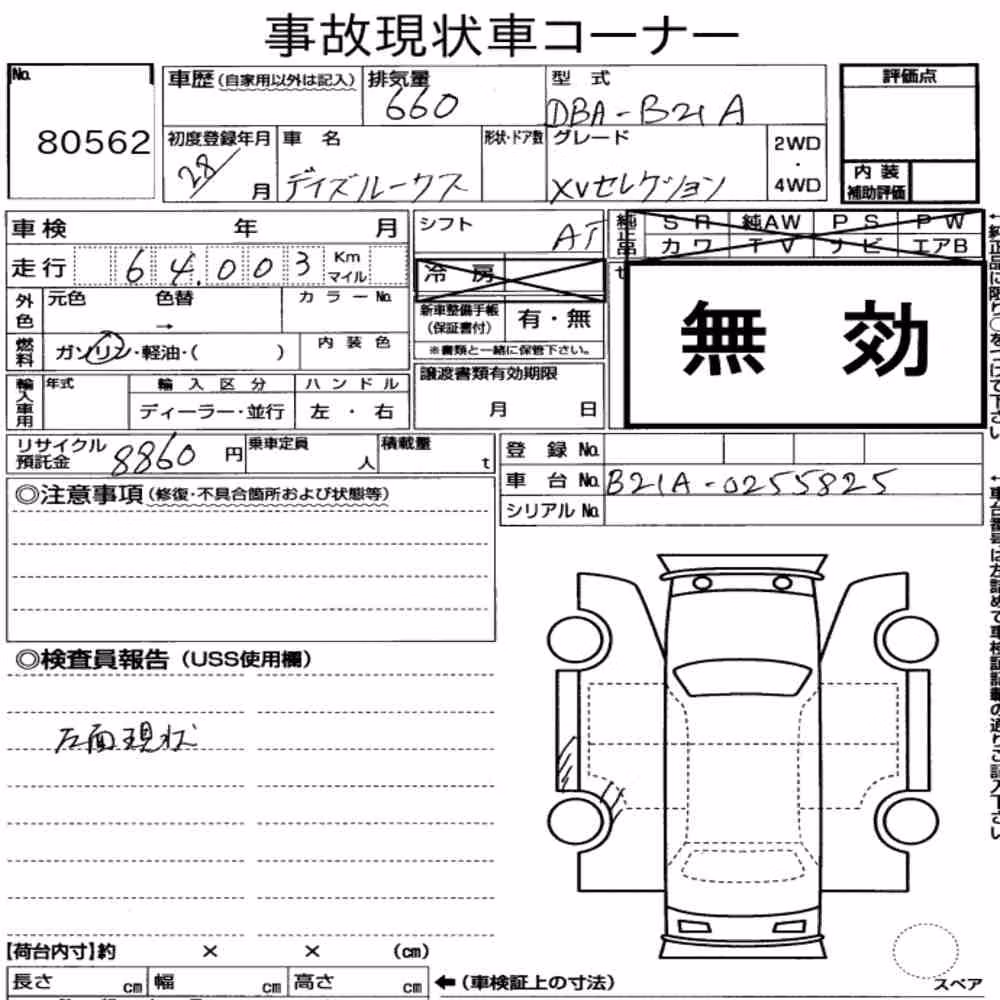 事故現状車コーナー
No. 80562
車歴(自家用以外は記入)
排気量 660
型式 DBA-B21A
評価点
初度登録年月 28/ 月
車名 デイズルークス
形状・ドア数
グレード XVセレクション
2WD・4WD
内装補助評価
車検 年 月
シフト AT
純正品 SR 純AW PS PW
カワ TV ナビ エアB
走行 64.003 Km マイル
冷房
無効
外色 元色 色替 → カラーNo.
新車整備手帳(保証書付) 有・無
※書類と一緒に保管下さい。
燃料 ガソリン・軽油・( )
内装色
輸入車用 年式 輸入区分 ハンドル
ディーラー・並行 左・右
譲渡書類有効期限
月 日
リサイクル預託金 8860円
乗車定員 人
積載量 t
登録No.
車台No. B21A-0255825
シリアルNo.
◎注意事項(修復・不具合箇所および状態等)
◎検査員報告(USS使用欄)
左面現状
【荷台内寸】約 × × (cm)
長さ cm 幅 cm 高さ cm
←(車検証上の寸法)
スペア
←純正品に限り○をつけて下さい